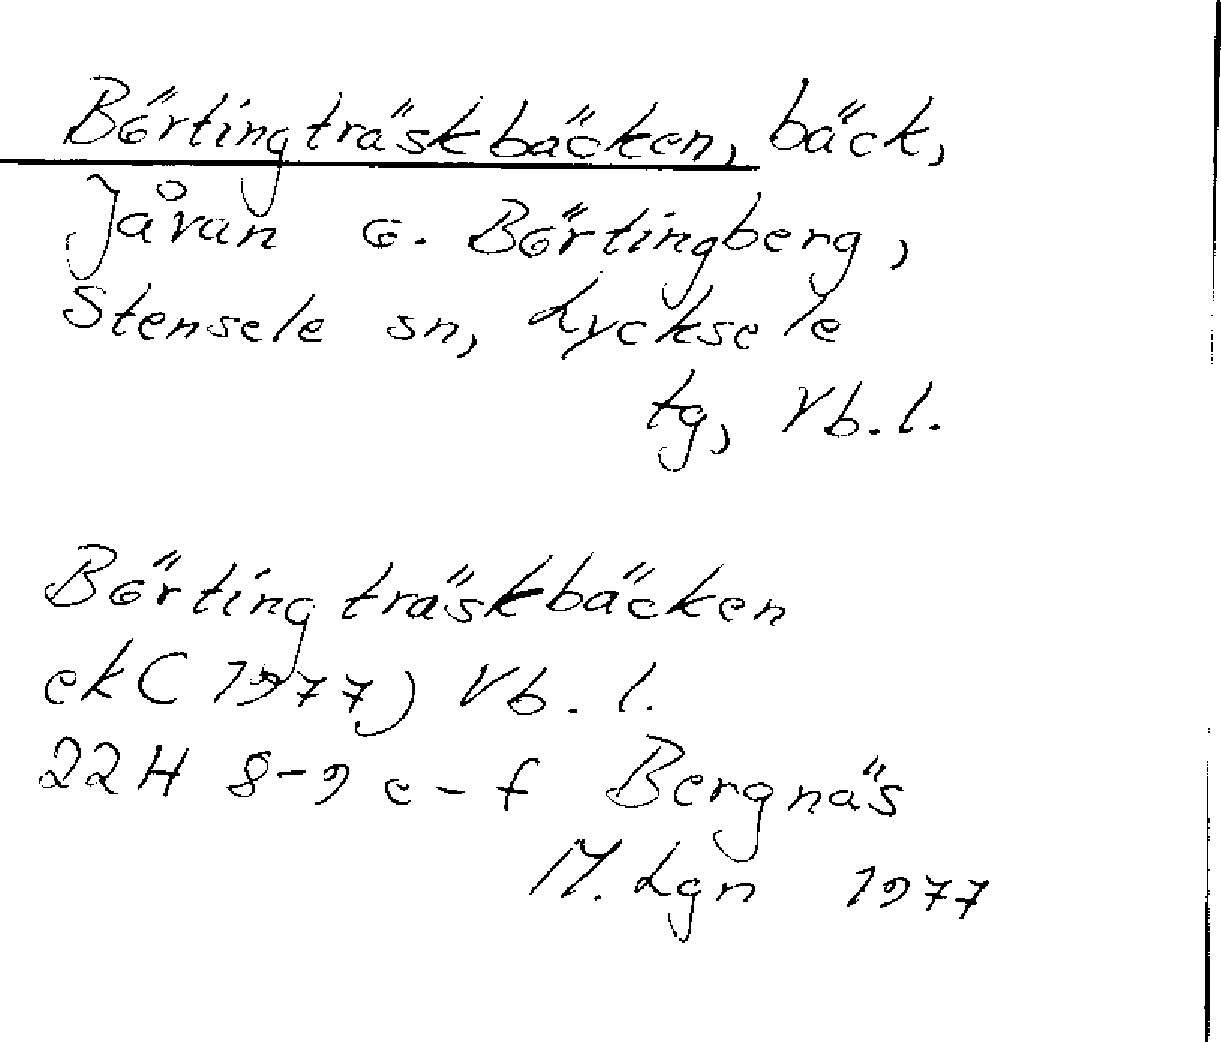 Börtingträskbäcken, bäck,
Jåvan o. Börtingberg,
Stensele sn, Lycksele
tg, Vb.l.
Börtingträskbäcken
ek (1977) Vb.l.
22H 8-9e-f Bergnäs
M. Lgn 1977